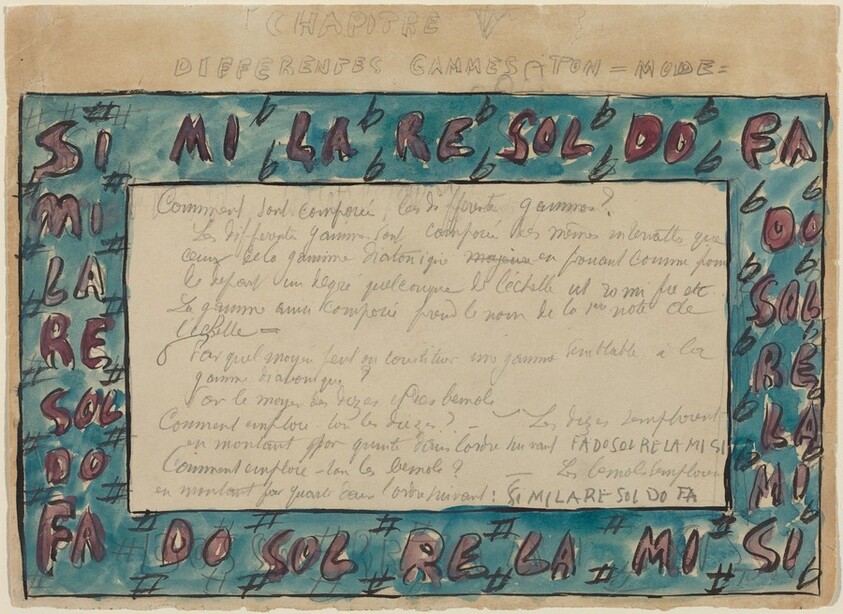 CHAPITRE V
DIFFERENTES GAMMES TON = MODE =
SI MI LA RE SOL DO FA
MI
LA
RE
SOL
DO
FA
DO
SOL
RE
LA
MI
DO SOL RE LA MI SI
Comment sont composée les differente gammes?
Les differente gamme sont composée des mêmes intervalles que
ceux de la gamme diatonique majeure en prenant comme point
de depart un degre quelconque de l'échelle ut re mi fa etc
La gamme ainsi composée prend le nom de la 1ere note de
l'échelle =
Par quel moyen peut on constituer une gamme semblable à la
gamme diatonique?
Par le moyen des diezes et des bemols
Comment emploie ton les diezes? - Les diezes s'emploient
en montant par quinte dans l'ordre suivant FA DO SOL RE LA MI SI
Comment emploie-ton les bemols? - Les bemols s'emploien
en montant par quarte dans l'ordre suivant: SI MI LA RE SOL DO FA